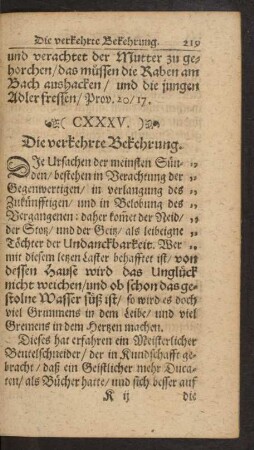 Die verkehrte Bekehrung. 219
und verachtet der Mutter zu ge-
horchen/das müssen die Raben am
Bach aushacken/ und die jungen
Adler fressen/ Prov. 20/ 17.
( CXXXV. )
Die verkehrte Bekehrung.
DJe Ursachen der meinsten Sün-
den/ bestehen in Verachtung der
Gegenwertigen/ in verlangung des
Zukünfftigen/ und in Belobung des
Vergangenen: daher komet der Neid/
der Stoltz/ und der Geitz/ als leibeigne
Töchter der Undanckbarkeit. Wer
mit diesem letzen Laster behafftet ist/ von
dessen Hause wird das Unglück
nicht weichen/ und ob schon das ge-
stolne Wasser süß ist/ so wird es doch
viel Grimmens in dem Leibe/ und viel
Gremens in dem Hertzen machen.
Dieses hat erfahren ein Meisterlicher
Beutelschneider/ der in Kundschafft ge-
bracht/ daß ein Geistlicher mehr Duca-
ten/ als Bücher hatte/ und sich besser auf
K ij die